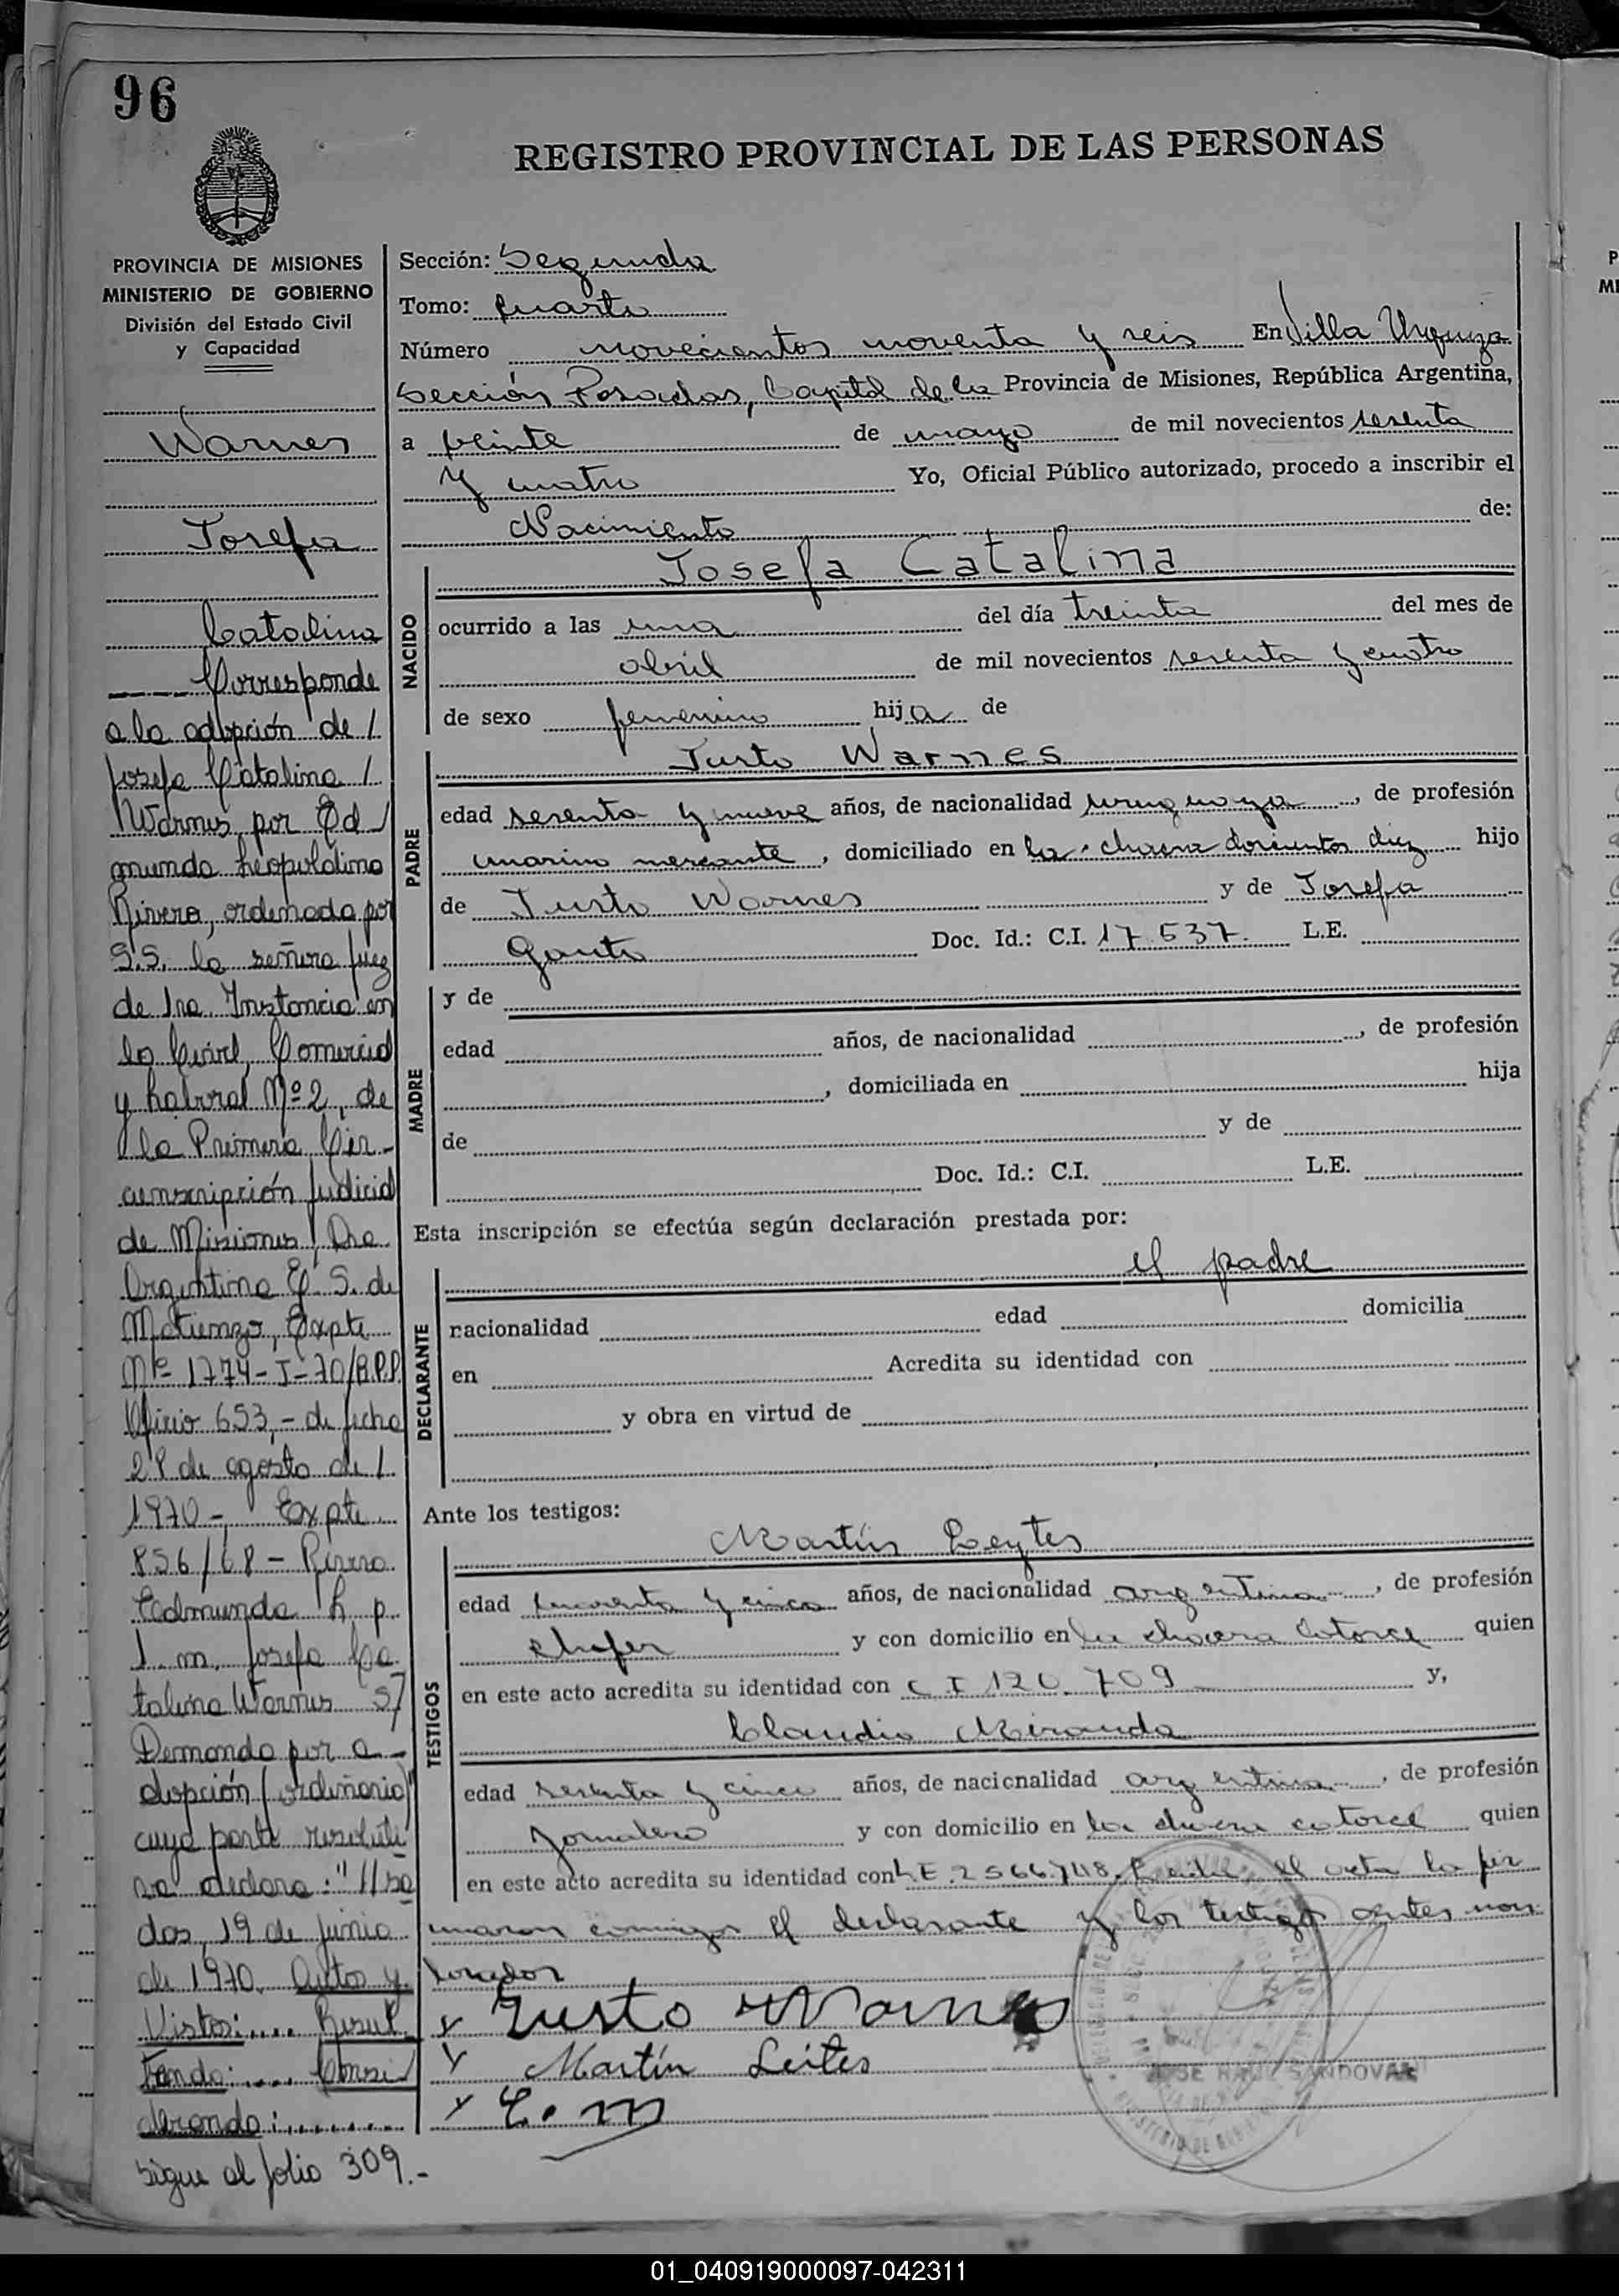 96
REGISTRO PROVINCIAL DE LAS PERSONAS
PROVINCIA DE MISIONES
MINISTERIO DE GOBIERNO
División del Estado Civil
y Capacidad
Warnes
Josefa
Catalina
Corresponde
a la adopción de /
Josefa Catalina /
Warnes, por Ed /
mundo Leopoldino
Rivero, ordenada por
S.S. la señora Juez
de 1ra. Instancia en
lo Civil, Comercial
y Laboral Nº 2, de
la Primera Cir-
cunscripción Judicial
de Misiones, Dra.
Argentina E. S. de
Matienzo, Expte.
Nº 1774-J-70/B.P.P.
Oficio 653,- de fecha
28 de agosto de /
1970-, Expte.
856/68 - Rivero
Edmundo L. p.
J. m. Josefa Ca
talina Warnes s/
Demanda por a-
dopción (ordinario)"
cuya parte resoluti
va declara: "//sa
das, 19 de junio
de 1970. Autos y
Vistos:.... Resul
tando:.... Consi/
derando:........
Sigue al folio 309.-
Sección: Segunda
Tomo: Cuarto
Número novecientos noventa y seis En Villa Urquiza
Sección Posadas, Capital de la Provincia de Misiones, República Argentina,
a veinte de mayo de mil novecientos sesenta
y cuatro Yo, Oficial Público autorizado, procedo a inscribir el
Nacimiento de:
NACIDO
Josefa Catalina
ocurrido a las una del día treinta del mes de
abril de mil novecientos sesenta y cuatro
de sexo femenino hija de
PADRE
Justo Warnes
edad sesenta y nueve años, de nacionalidad uruguaya, de profesión
marino mercante, domiciliado en la chacra doscientos diez hijo
de Justo Warnes y de Josefa
Gauto Doc. Id.: C.I. 17.537. L.E.
MADRE
y de
edad años, de nacionalidad , de profesión
, domiciliada en hija
de y de
Doc. Id.: C.I. L.E.
Esta inscripción se efectúa según declaración prestada por:
DECLARANTE
el padre
nacionalidad edad domicilia
en Acredita su identidad con
y obra en virtud de
Ante los testigos:
TESTIGOS
Martín Leytes
edad y cinco años, de nacionalidad argentina, de profesión
chofer y con domicilio en la chacra catorce quien
en este acto acredita su identidad con C I 120.709 y,
Claudio Miranda
edad sesenta y cinco años, de nacionalidad argentina, de profesión
Jornalero y con domicilio en la chacra catorce quien
en este acto acredita su identidad con L E. 2566748. el acta la fir
maron conmigo el declarante y los testigos antes men
cionados
x Justo Warnes
x Martín Leites
x C. m
JOSE RAUL SANDOVAL
01_040919000097-042311